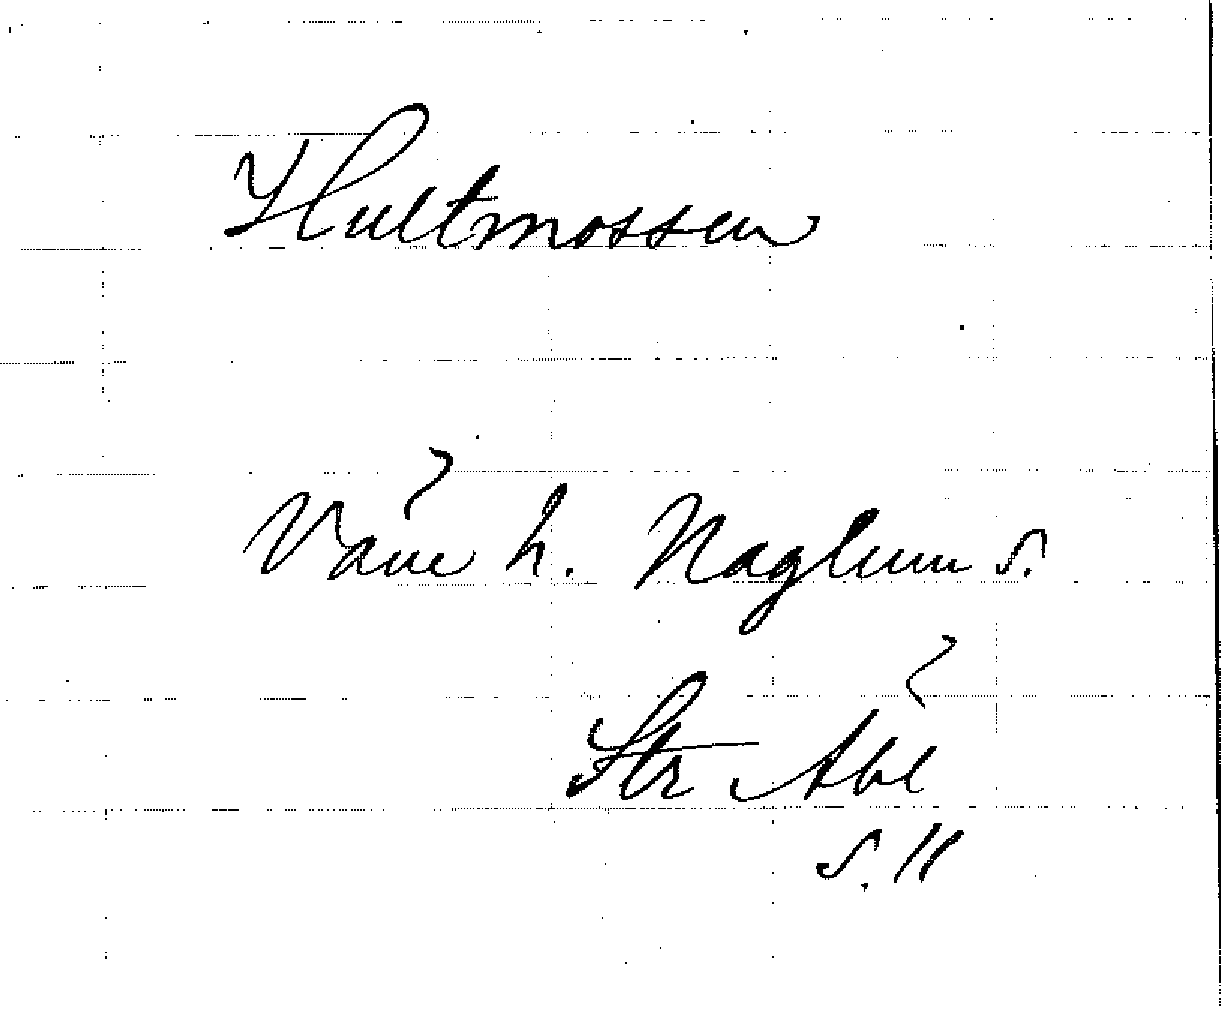 Hultmossen
Väne h. Naglum s.
Str Åbl
s. 11